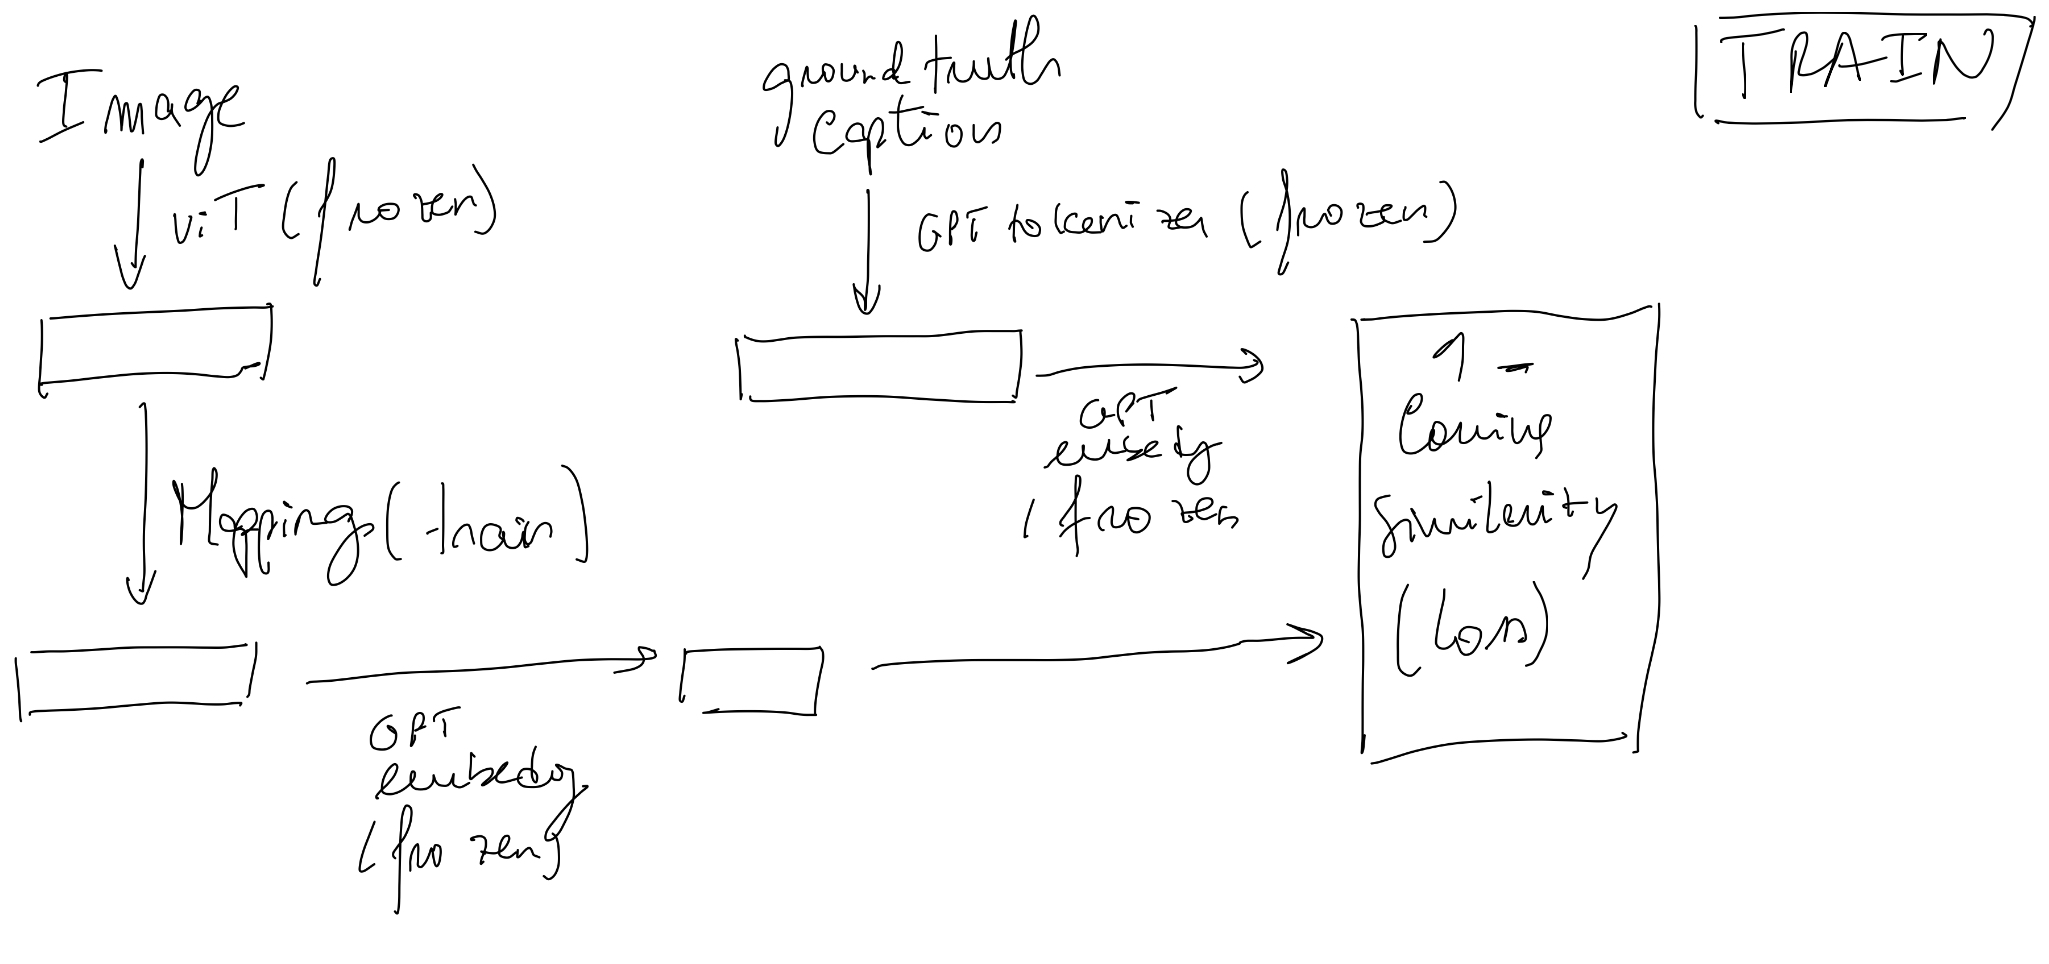 TRAIN
Image
ViT (frozen)
Mapping (train)
GPT
embedg
(frozen)
ground truth
Captions
GPT tokenizer (frozen)
GPT
embedg
(frozen
1 -
Cosine
Similarity
(Loss)